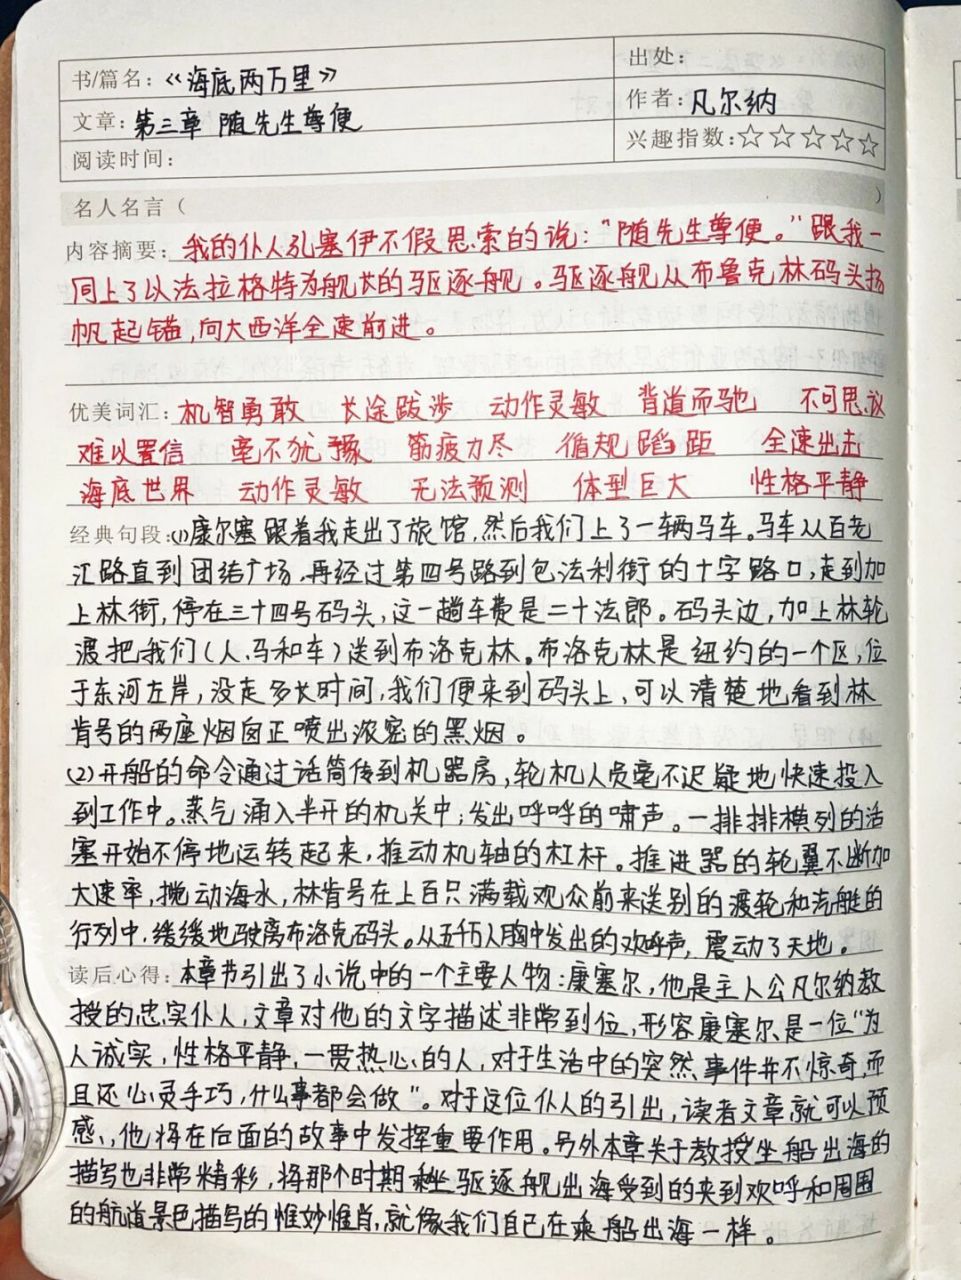 书/篇名：《海底两万里》
出处：
文章：第三章 随先生尊便
作者：凡尔纳
阅读时间：
兴趣指数：☆☆☆☆☆
名人名言（ ）
内容摘要：我的仆人孔塞伊不假思索的说：“随先生尊便。”跟我一
同上了以法拉格特为舰长的驱逐舰。驱逐舰从布鲁克林码头扬
帆起锚，向大西洋全速前进。
优美词汇：机智勇敢 长途跋涉 动作灵敏 背道而驰 不可思议
难以置信 毫不犹豫 筋疲力尽 循规蹈距 全速出击
海底世界 动作灵敏 无法预测 体型巨大 性格平静
经典句段：(1)康尔塞跟着我走出了旅馆，然后我们上了一辆马车。马车从百老
汇路直到团结广场，再经过第四号路到包法利街的十字路口，走到加
上林街，停在三十四号码头，这一趟车费是二十法郎。码头边，加上林轮
渡把我们（人、马和车）送到布洛克林。布洛克林是纽约的一个区，位
于东河左岸，没走多长时间，我们便来到码头上，可以清楚地看到林
肯号的两座烟囱正喷出浓密的黑烟。
(2)开船的命令通过话筒传到机器房，轮机人员毫不迟疑地快速投入
到工作中。蒸气涌入半开的机关中，发出呼呼的啸声。一排排横列的活
塞开始不停地运转起来，推动机轴的杠杆。推进器的轮翼不断加
大速率，搅动海水，林肯号在上百只满载观众前来送别的渡轮和汽艇的
行列中，缓缓地驶离布洛克码头。从五千万人胸中发出的欢呼声，震动了天地。
读后心得：本章节引出了小说中的一个主要人物：康塞尔，他是主人公凡尔纳教
授的忠实仆人，文章对他的文字描述非常到位，形容康塞尔是一位“为
人诚实，性格平静，一贯热心的人，对于生活中的突然事件并不惊奇，而
且还心灵手巧，什么事都会做”。对于这位仆人的引出，读者文章就可以预
感，他将在后面的故事中发挥重要作用。另外本章关于教授坐船出海的
描写也非常精彩，将那个时期乘坐驱逐舰出海受到的来到欢呼和周围
的航道景色描写的惟妙惟肖，就像我们自己在乘船出海一样。